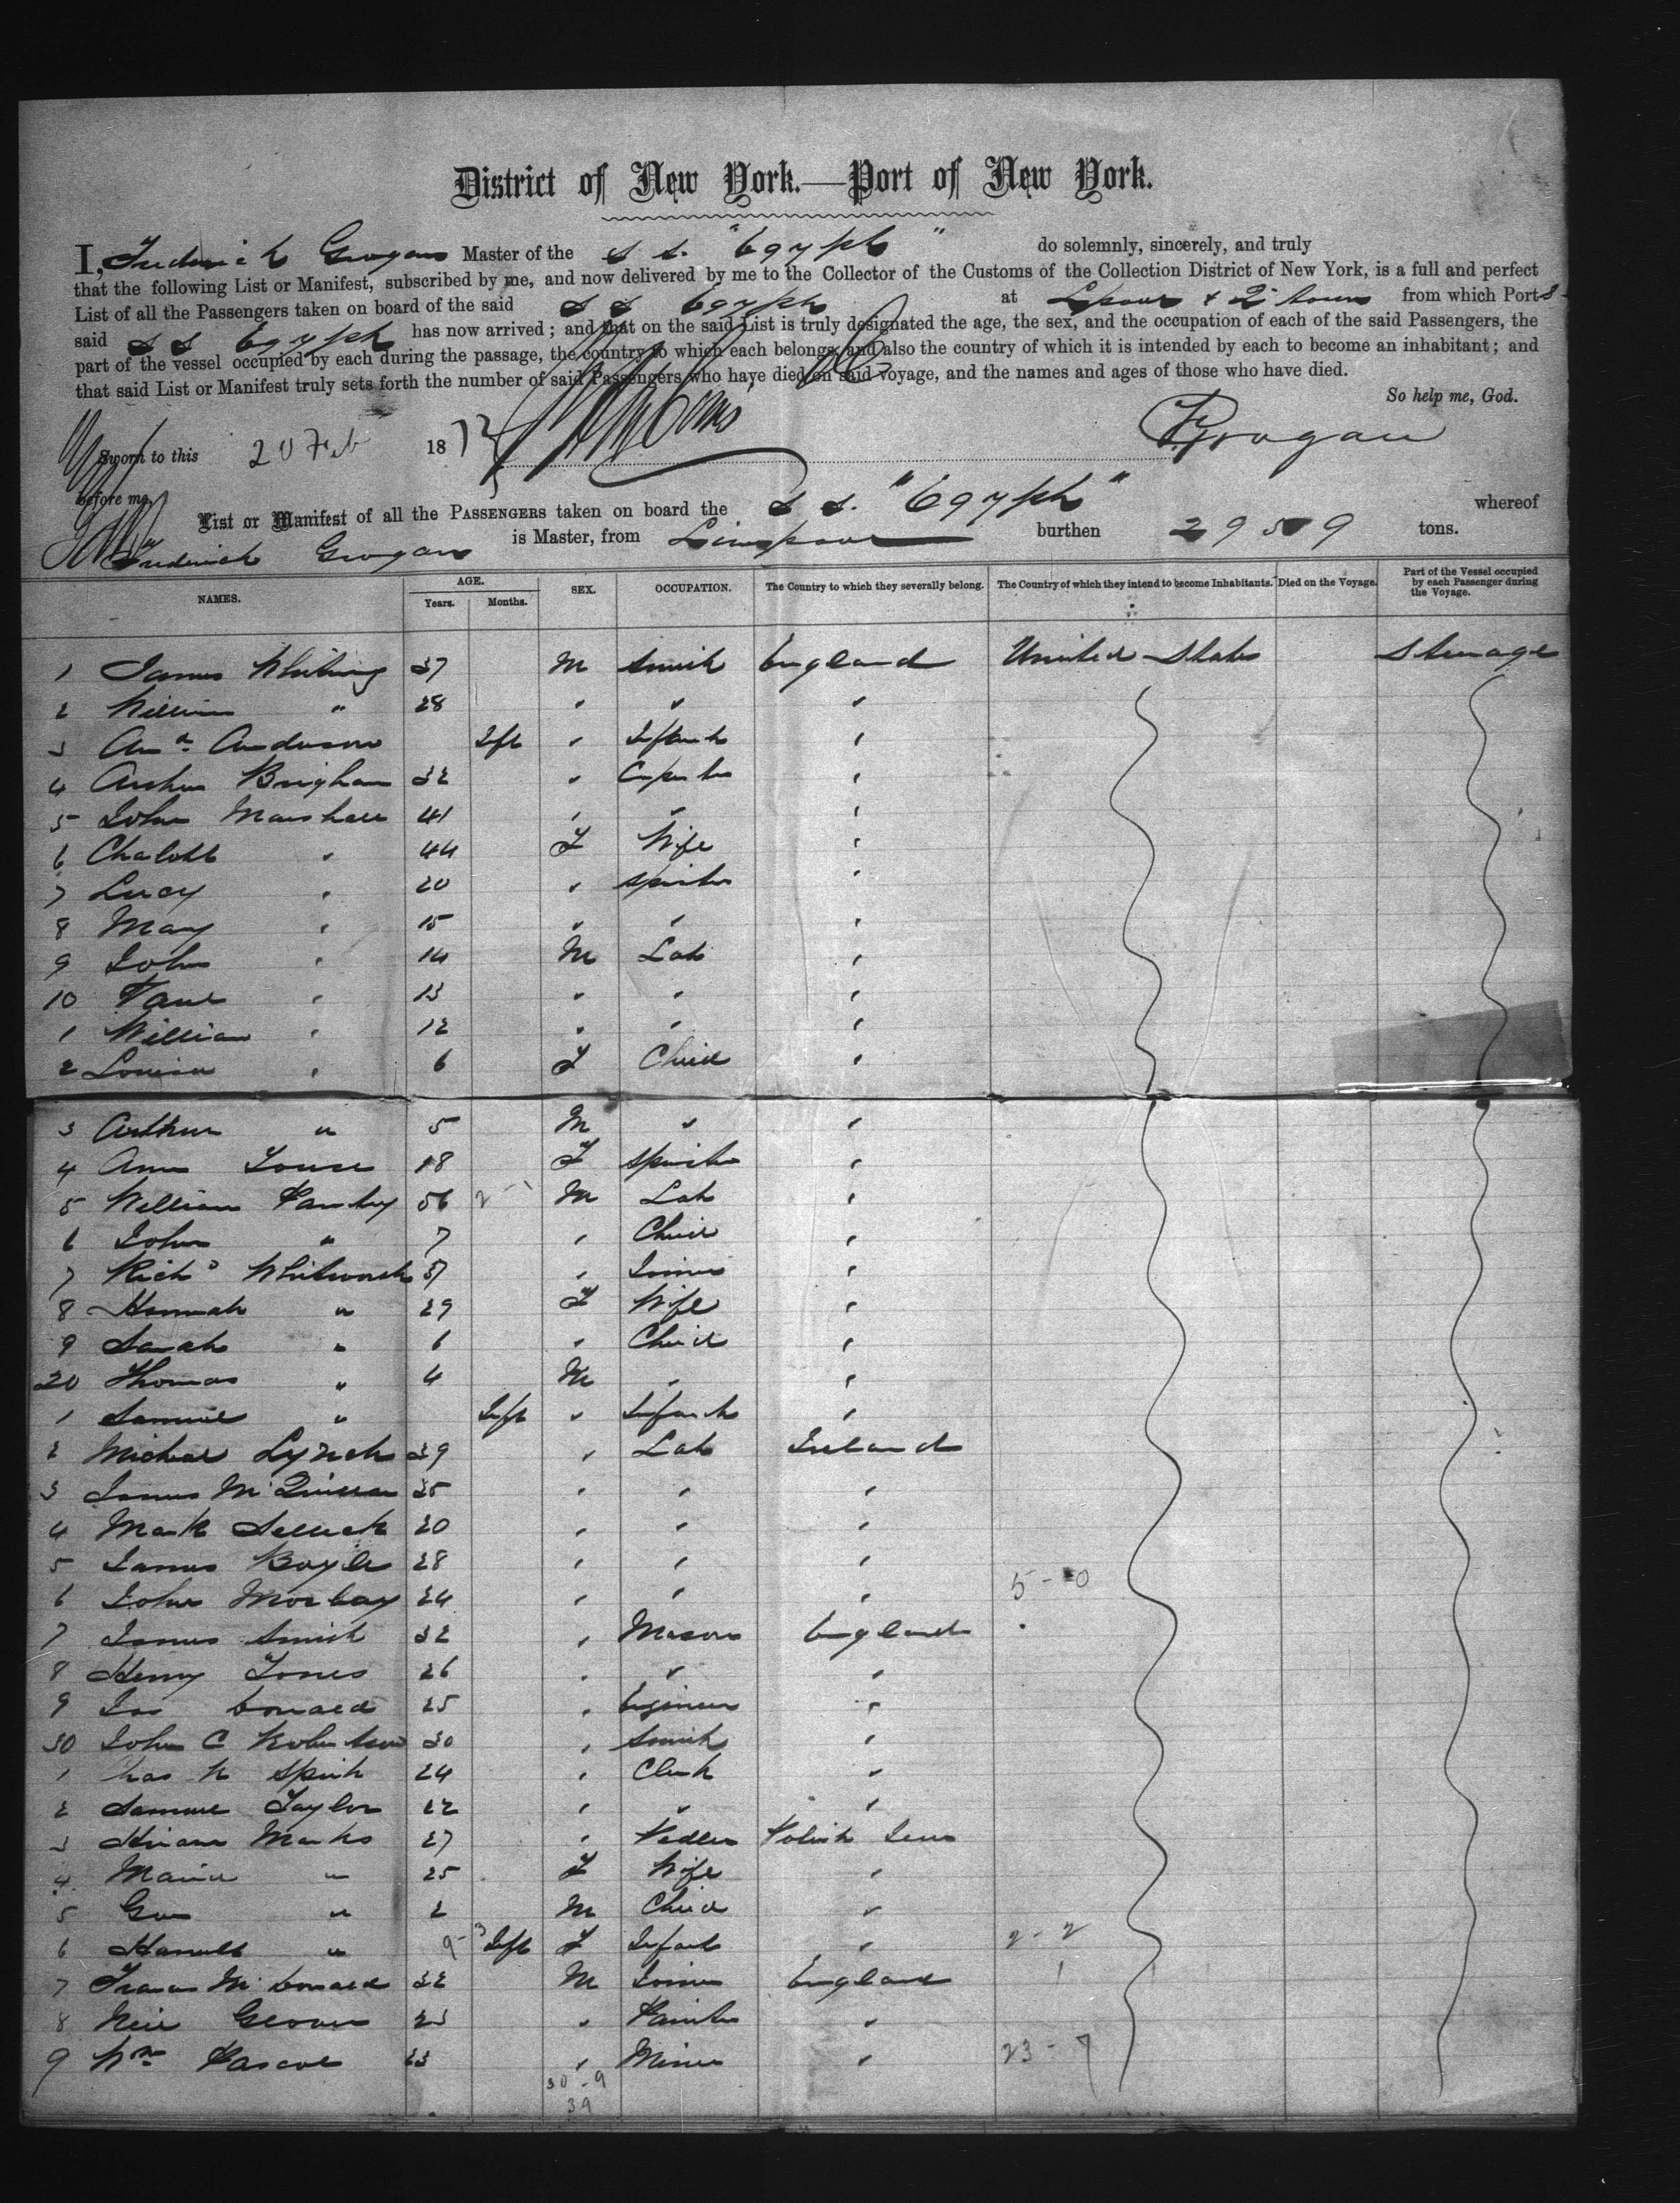 District of New York.—Port of New York.
I, Frederick Grogan Master of the S S. "Egypt" do solemnly, sincerely, and truly
that the following List or Manifest, subscribed by me, and now delivered by me to the Collector of the Customs of the Collection District of New York, is a full and perfect
List of all the Passengers taken on board of the said S S Egypt at L'pool & Q'town from which Port s
said S S Egypt has now arrived; and that on the said List is truly designated the age, the sex, and the occupation of each of the said Passengers, the
part of the vessel occupied by each during the passage, the country to which each belongs, and also the country of which it is intended by each to become an inhabitant; and
that said List or Manifest truly sets forth the number of said Passengers who have died on said voyage, and the names and ages of those who have died.
So help me, God.
Sworn to this 20 Feb 1872 F Grogan
before me,
List or Manifest of all the PASSENGERS taken on board the S S. "Egypt" whereof
Frederick Grogan is Master, from Liverpool burthen 2959 tons.
NAMES. AGE. Years. Months. SEX. OCCUPATION. The Country to which they severally belong. The Country of which they intend to become Inhabitants. Died on the Voyage. Part of the Vessel occupied by each Passenger during the Voyage.
1 James Whiting 37 M Smith England United States Steerage
2 William " 28 " " "
3 Anⁿ Anderson Inft " Infant "
4 Arthur Brigham 32 " Carpenter "
5 John Marshall 41 " " "
6 Chalott " 44 F Wife "
7 Lucy " 20 " Spinster "
8 Mary " 15 " " "
9 John " 14 M Lab "
10 Paul " 13 " " "
1 William " 12 " " "
2 Louisa " 6 F Child "
3 Arthur " 5 M " "
4 Ann 18 F Spinster "
5 William 56 M Lab "
6 John " 7 " Child "
7 Richd Whitworth 37 " Joiner "
8 Hannah " 29 F Wife "
9 Sarah " 6 " Child "
20 Thomas " 4 M " "
1 Samuel " Inft " Infant "
2 Michael Lynch 39 " Lab Ireland
3 James 25 " " "
4 Mark Selleck 20 " " "
5 James Boyle 28 " " "
6 John 24 " " " 5 - 0
7 James Smith 32 " Mason England
8 Henry Jones 26 " " "
9 Jas 25 " Engineer "
30 John C Robertson 30 " Smith "
1 24 " Clerk "
2 Samuel Taylor 22 " " "
3 Hiram Marks 27 " Pedler Polish Jew
4 Maria " 25 F Wife "
5 " 2 M Child "
6 " 9 Inft F Infant " 2 - 2
7 Francis McDonald 32 M Joiner England 1
8 Neil 23 " Painter "
9 Wm Pascoe 23 " Miner " 23 - 7
30 - 9
39